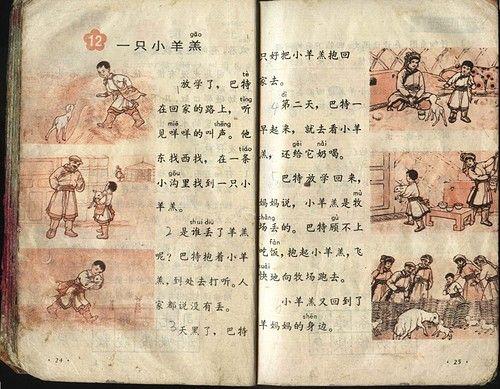 gāo
12 一只小羊羔
tè
放学了，巴特
tīng
在回家的路上，听
miē shēng
见咩咩的叫声。他
tiáo
东找西找，在一条
gōu
小沟里找到一只小
羊羔。
shuí diū
2 是谁丢了羊羔
呢？巴特抱着小羊
羔，到处去打听。人
家都说没有丢。
3 天黑了，巴特
· 24 ·
只好把小羊羔抱回
家去。
dì
第二天，巴特一
早起来，就去看小羊
gěi nǎi
羔，还给它奶喝。
巴特放学回来，
mù
妈妈说，小羊羔是牧
chǎng gù
场丢的。巴特顾不上
fàn
吃饭，抱起小羊羔，飞
kuài
快地向牧场跑去。
小羊羔又回到了
shēn
羊妈妈的身边。
· 25 ·